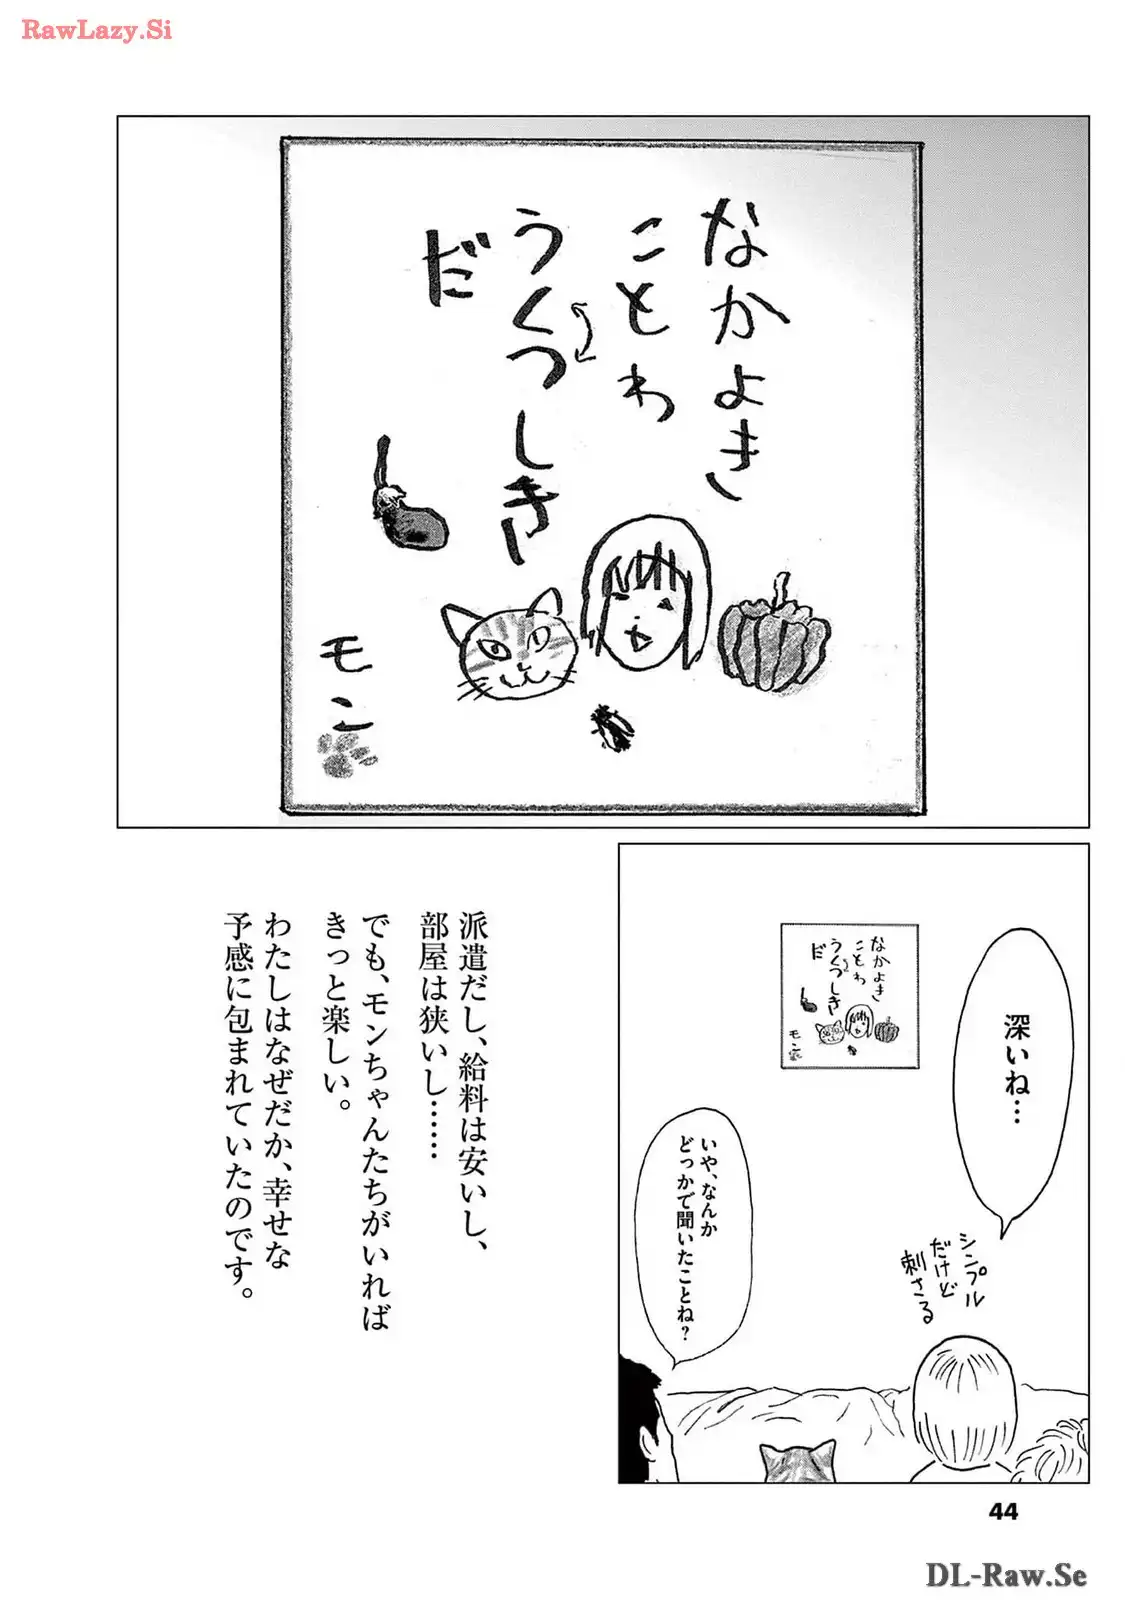 RawLazy.Si
なかよき
ことわ
うくつしき
だ
モン
深いね…
シンプル
だけど
刺さる
なかよき
ことわ
うくつしき
だ
モン
いや、なんか
どっかで聞いたことね？
派遣だし、給料は安いし、
部屋は狭いし……
でも、モンちゃんたちがいれば
きっと楽しい。
わたしはなぜだか、幸せな
予感に包まれていたのです。
44
DL-Raw.Se